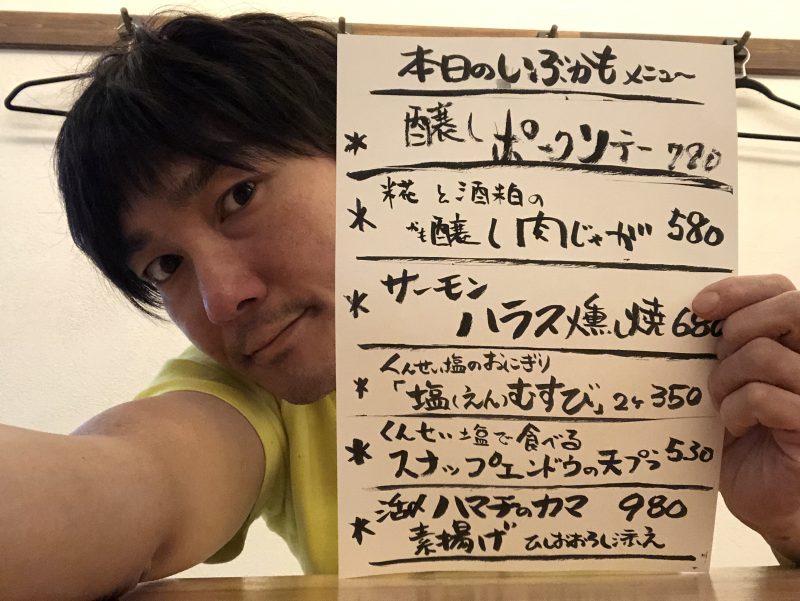 本日のいぶかもメニュー
* 醸しポークソテー 780
* 糀と酒粕の
かも醸し肉じゃが 580
* サーモン
ハラス燻し焼 680
* くんせい塩のおにぎり
「塩(えん)むすび」2ヶ 350
* くんせい塩で食べる
スナップエンドウの天プラ 530
* 活〆ハマチのカマ 980
素揚げ ひしおおろし添え